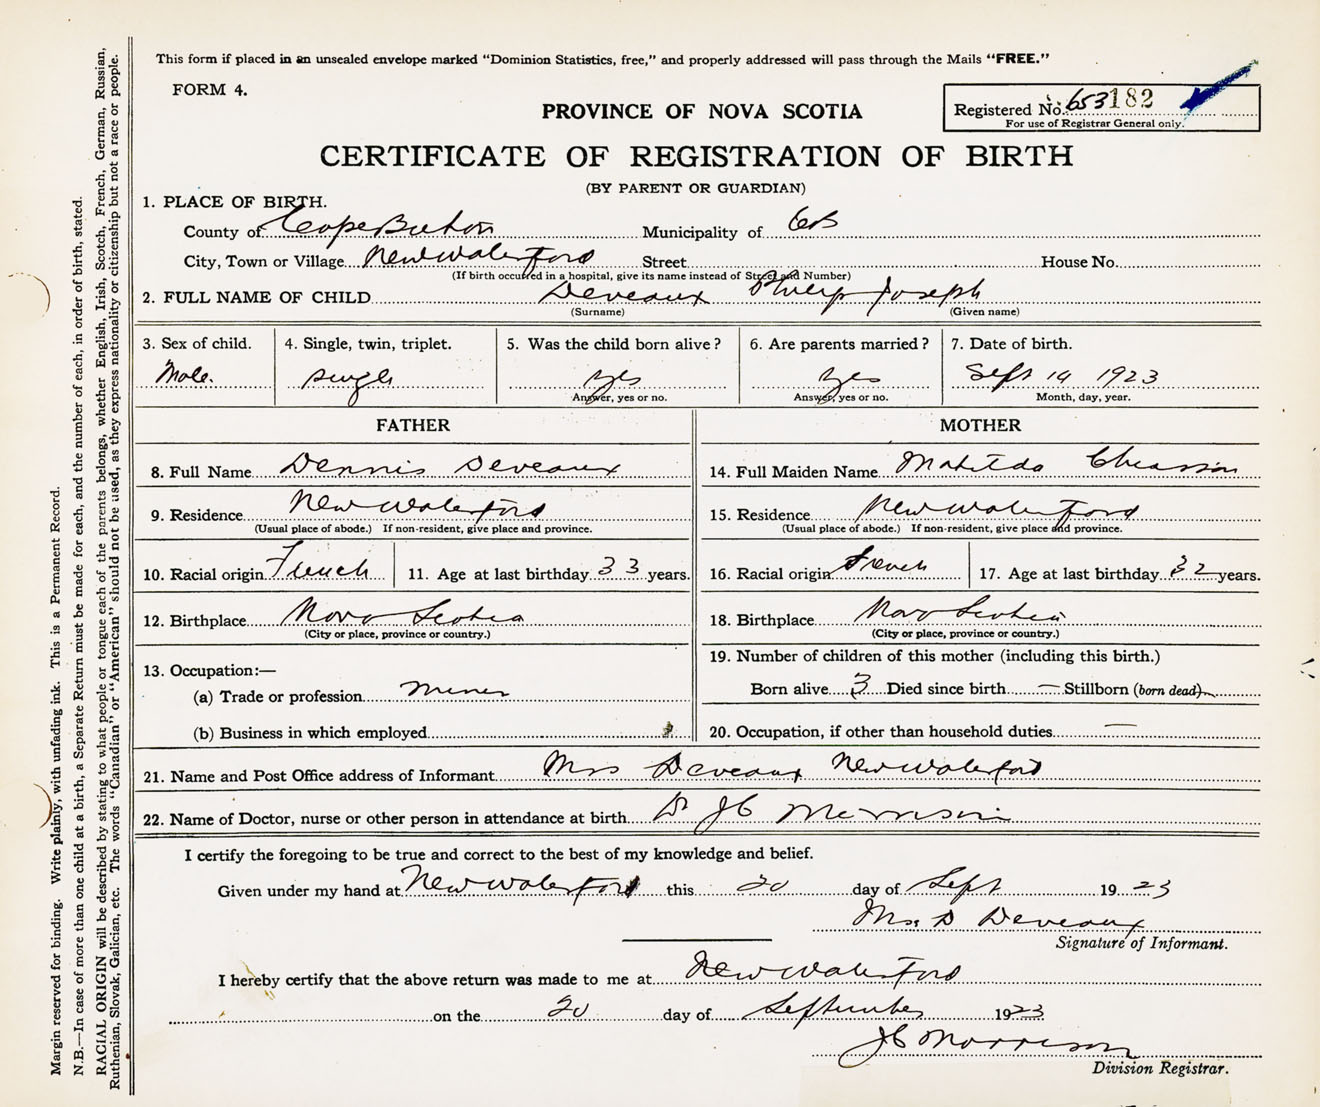 This form if placed in an unsealed envelope marked “Dominion Statistics, free,” and properly addressed will pass through the Mails “FREE.”
FORM 4.
Registered No. 653182
For use of Registrar General only.
PROVINCE OF NOVA SCOTIA
CERTIFICATE OF REGISTRATION OF BIRTH
(BY PARENT OR GUARDIAN)
1. PLACE OF BIRTH.
County of Cape Breton Municipality of CB
City, Town or Village New Waterford Street House No.
(If birth occurred in a hospital, give its name instead of Street and Number)
2. FULL NAME OF CHILD Deveaux Philip Joseph
(Surname) (Given name)
3. Sex of child. 4. Single, twin, triplet. 5. Was the child born alive? 6. Are parents married? 7. Date of birth.
Male. single yes yes Sept 14 1923
Answer, yes or no. Answer, yes or no. Month, day, year.
FATHER MOTHER
8. Full Name Dennis Deveaux 14. Full Maiden Name Matilda Chiasson
9. Residence New Waterford 15. Residence New Waterford
(Usual place of abode.) If non-resident, give place and province. (Usual place of abode.) If non-resident, give place and province.
10. Racial origin French 11. Age at last birthday 33 years. 16. Racial origin French 17. Age at last birthday 32 years.
12. Birthplace Nova Scotia 18. Birthplace Nova Scotia
(City or place, province or country.) (City or place, province or country.)
13. Occupation:— 19. Number of children of this mother (including this birth.)
(a) Trade or profession miner Born alive 3 Died since birth — Stillborn (born dead)
(b) Business in which employed 20. Occupation, if other than household duties —
21. Name and Post Office address of Informant Mrs Deveaux New Waterford
22. Name of Doctor, nurse or other person in attendance at birth Dr JC Morrison
I certify the foregoing to be true and correct to the best of my knowledge and belief.
Given under my hand at New Waterford this 20 day of Sept 1923
Mrs. D Deveaux
Signature of Informant.
I hereby certify that the above return was made to me at New Waterford
on the 20 day of September 1923
JC Morrison
Division Registrar.
Margin reserved for binding. Write plainly, with unfading ink. This is a Permanent Record.
N.B.—In case of more than one child at a birth, a Separate Return must be made for each, and the number of each, in order of birth, stated.
RACIAL ORIGIN will be described by stating to what people or tongue each of the parents belongs, whether English, Irish, Scotch, French, German, Russian,
Ruthenian, Slovak, Galician, etc. The words “Canadian” or “American” should not be used, as they express nationality or citizenship but not a race or people.